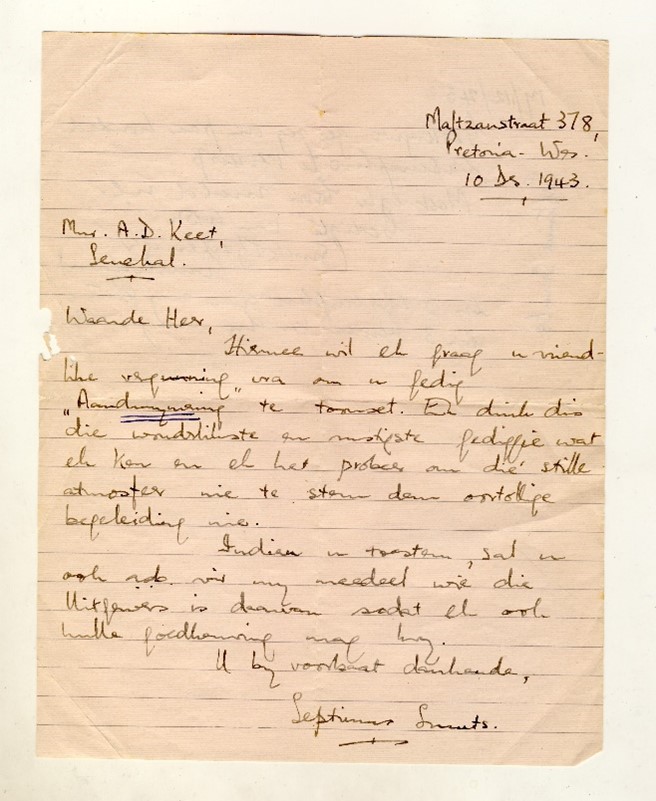 Maltzanstraat 378,
Pretoria-Wes.
10 Des. 1943.
Mnr. A.D. Keet,
Senekal.
Waarde Heer,
Hiermee wil ek graag u vriend-
like vergunning vra om u gedig
"Aandmymering" te toonset. Ek dink dis
die wonderlikste en rustigste gediggie wat
ek ken en ek het probeer om dié stille
atmosfeer nie te steur deur oortollige
begeleiding nie.
Indien u toestem, sal u
ook asb. vir my meedeel wie die
Uitgewers is daarvan sodat ek ook
hulle goedkeuring mag kry.
U by voorbaat dankende,
Septimus Smuts.